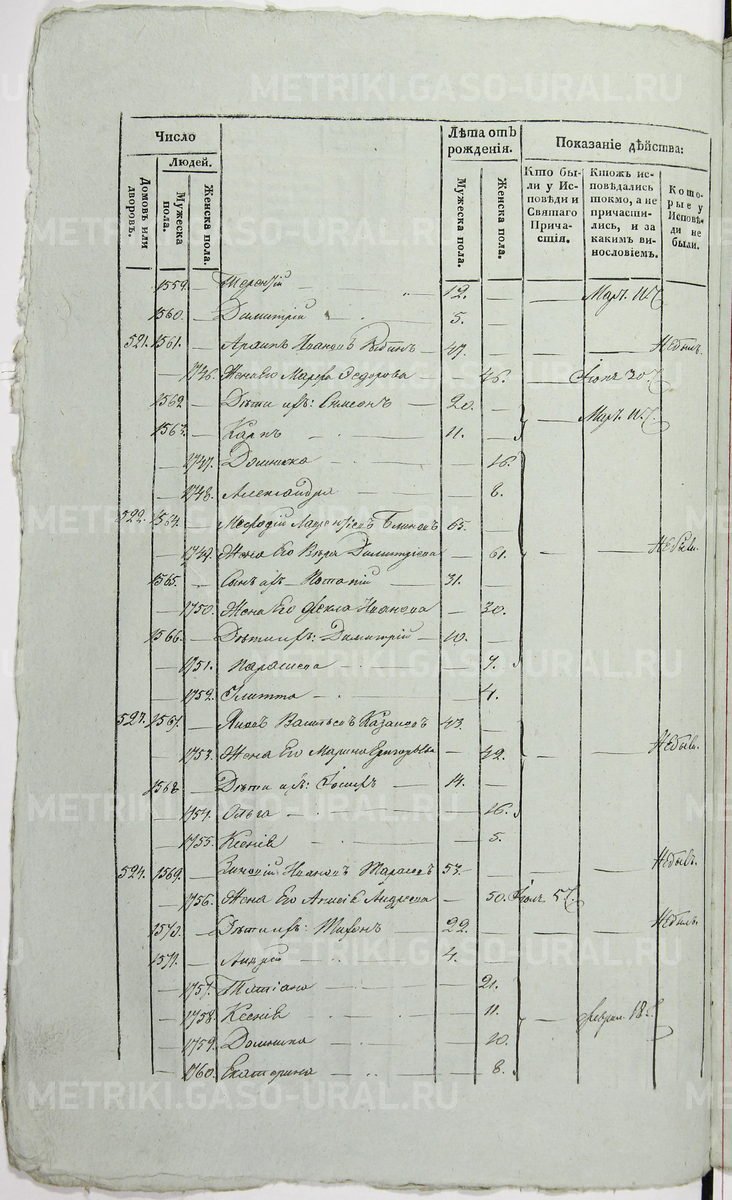 METRIKI.GASO-URAL.RU
Число
Людей.
Домовъ или дворовъ.
Мужеска пола.
Женска пола.
Лѣта отъ рожденія.
Мужеска пола.
Женска пола.
Показаніе дѣйства:
Кто были у Исповѣди и Святаго Причастія.
Ктожъ исповѣдались токмо, а не причастились, и за какимъ винословіемъ.
Которые у Исповѣди не были.
1559. Терентій 12.
1560. Димитрій 5.
521. 1561. Иванов 47. Небылъ.
1746. Жена его Марфа Федорова 46.
1562 Дѣти ихъ: Симеонъ 20.
1563. Карпъ 11.
1747. Домника 16.
1748. Александра 8.
522. 1564. Меѳодій Блинов 65.
1749. Жена Его Вѣра Димитріева 61. Небыли.
1565. Сынъ ихъ Потапій 31.
1750. Жена Его Ѳекла Иванова 30.
1566. Дѣти ихъ: Димитрій 10.
1751. Параскева 7.
1752. Улитта 4.
523. 1567. Яковъ Васильевъ Казанцовъ 43.
1753. Жена Его Марина Григорьева 42. Небыв.
1568. Дѣти ихъ: Іосифъ 14.
1754. Ольга 16.
1755. Ксенія 5.
524. 1569. Зиновій Ивановъ Тарасовъ 53. Небывъ.
1756. Жена Его Анисія Андреева 50.
1570. Дѣти ихъ: Тихонъ 22. Небылъ.
1571. Андрей 4.
1757. Татіана 21.
1758. Ксенія 11.
1759. Домника 10.
1760. Екатерина 8.